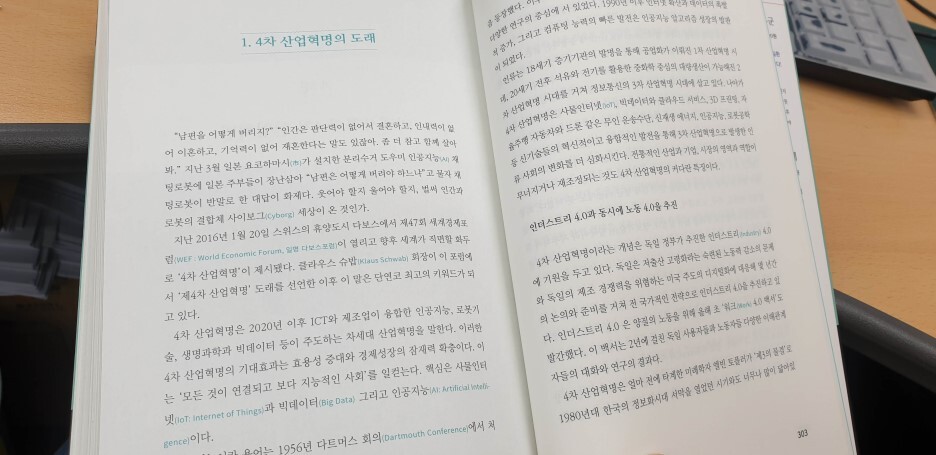 1. 4차 산업혁명의 도래
"남편을 어떻게 버리지?" "인간은 판단력이 없어서 결혼하고, 인내력이 없
어 이혼하고, 기억력이 없어 재혼한다는 말도 있잖아. 좀 더 참고 함께 살아
봐." 지난 3월 일본 요코하마시(市)가 설치한 분리수거 도우미 인공지능(AI) 채
팅로봇에 일본 주부들이 장난삼아 "남편은 어떻게 버려야 하느냐"고 묻자 채
팅로봇이 반말로 한 대답이 화제다. 웃어야 할지 울어야 할지, 벌써 인간과
로봇의 결합체 사이보그(Cyborg) 세상이 온 것인가.
지난 2016년 1월 20일 스위스의 휴양도시 다보스에서 제47회 세계경제포
럼(WEF : World Economic Forum, 일명 다보스포럼)이 열리고 향후 세계가 직면할 화두
로 '4차 산업혁명'이 제시됐다. 클라우스 슈밥(Klaus Schwab) 회장이 이 포럼에
서 '제4차 산업혁명' 도래를 선언한 이후 이 말은 단연코 최고의 키워드가 되
고 있다.
4차 산업혁명은 2020년 이후 ICT와 제조업이 융합한 인공지능, 로봇기
술, 생명과학과 빅데이터 등이 주도하는 차세대 산업혁명을 말한다. 이러한
4차 산업혁명의 기대효과는 효용성 증대와 경제성장의 잠재력 확충이다. 이
는 '모든 것이 연결되고 보다 지능적인 사회'를 일컫는다. 핵심은 사물인터
넷(IoT: Internet of Things)과 빅데이터(Big Data) 그리고 인공지능(AI: Artificial Intelli-
gence)이다.
용어는 1956년 다트머스 회의(Dartmouth Conference)에서 처
을 등장했다.
다양한 연구의 중심에 서 있었다. 1990년 이후 인터넷 확산과 데이터의 폭발
적 증가, 그리고 컴퓨팅 능력의 빠른 발전은 인공지능 알고리즘 성장의 발판
이 되었다.
인류는 18세기 증기기관의 발명을 통해 공업화가 이뤄진 1차 산업혁명 시
대, 20세기 전후 석유와 전기를 활용한 중화학 중심의 대량생산이 가능해진 2
차 산업혁명 시대를 거쳐 정보통신의 3차 산업혁명 시대에 살고 있다. 나아가
4차 산업혁명은 사물인터넷(IoT), 빅데이터와 클라우드 서비스, 3D 프린팅, 자
율주행 자동차와 드론 같은 무인 운송수단, 신재생 에너지, 인공지능, 로봇공학
등 신기술들의 혁신적이고 융합적인 발전을 통해 3차 산업혁명으로 발생한 인
류 사회의 변화를 더 심화시킨다. 전통적인 산업과 기업, 시장의 영역과 역할이
무너지거나 재조정되는 것도 4차 산업혁명의 커다란 특징이다.
인더스트리 4.0과 동시에 노동 4.0을 추진
4차 산업혁명이라는 개념은 독일 정부가 추진한 인더스트리(Industry) 4.0
에 기원을 두고 있다. 독일은 저출산 고령화라는 숙련된 노동력 감소의 문제
와 독일의 제조 경쟁력을 위협하는 미국 주도의 디지털화에 대응해 몇 년간
의 논의와 준비를 거쳐 전 국가적인 전략으로 인더스트리 4.0을 추진하고 있
다. 인더스트리 4.0 은 양질의 노동을 위해 올해 초 '워크(Work) 4.0 백서'도
발간했다. 이 백서는 2년에 걸친 독일 사용자들과 노동자들 다양한 이해관계
자들의 대화와 연구의 결과다.
4차 산업혁명은 얼마 전에 타계한 미래학자 앨빈 토플러가 '제3의 물결'로
1980년대 한국의 정보화시대 서막을 열었던 시기와도 너무나 많이 닮아있
303